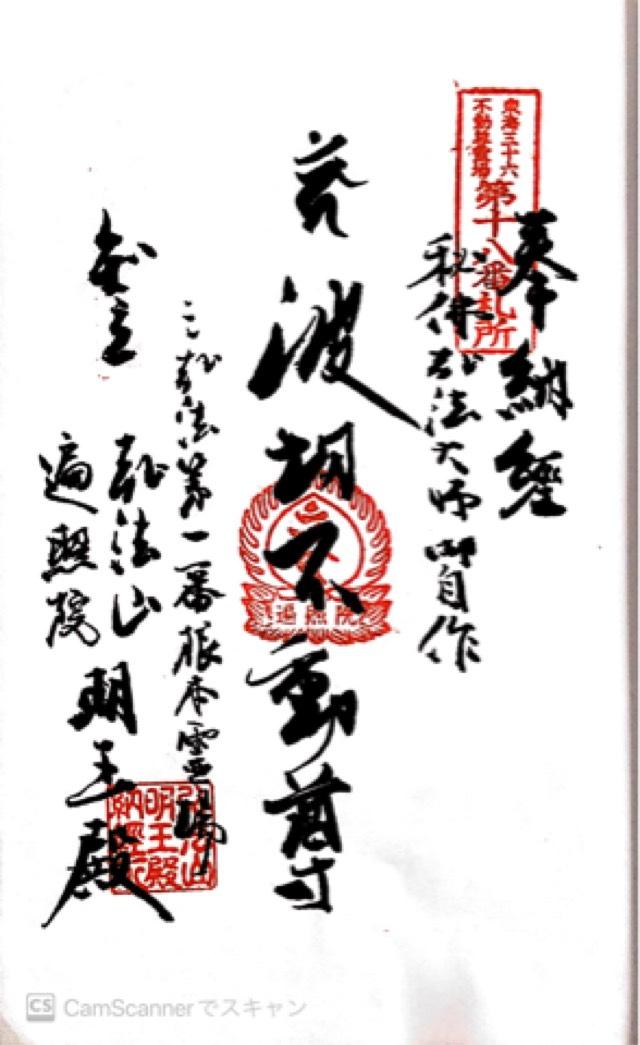 東海三十六
不動尊霊場
第十八番札所
奉納經
秘佛弘法大師御自作
波切不動尊
遍照院
三弘法第一番根本霊場
知立
弘法山
遍照院
明王殿
弘法山
明王殿
CS CamScannerでスキャン